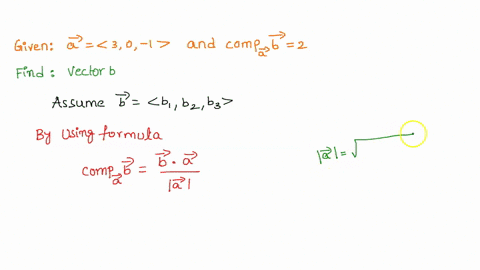 Given: a⃗ = <3, 0, -1> and comp_a⃗ b⃗ = 2
Find: Vector b
Assume b⃗ = <b₁, b₂, b₃>
By using formula
comp_a⃗ b⃗ = b⃗ · a⃗ / |a⃗|
|a⃗| = √